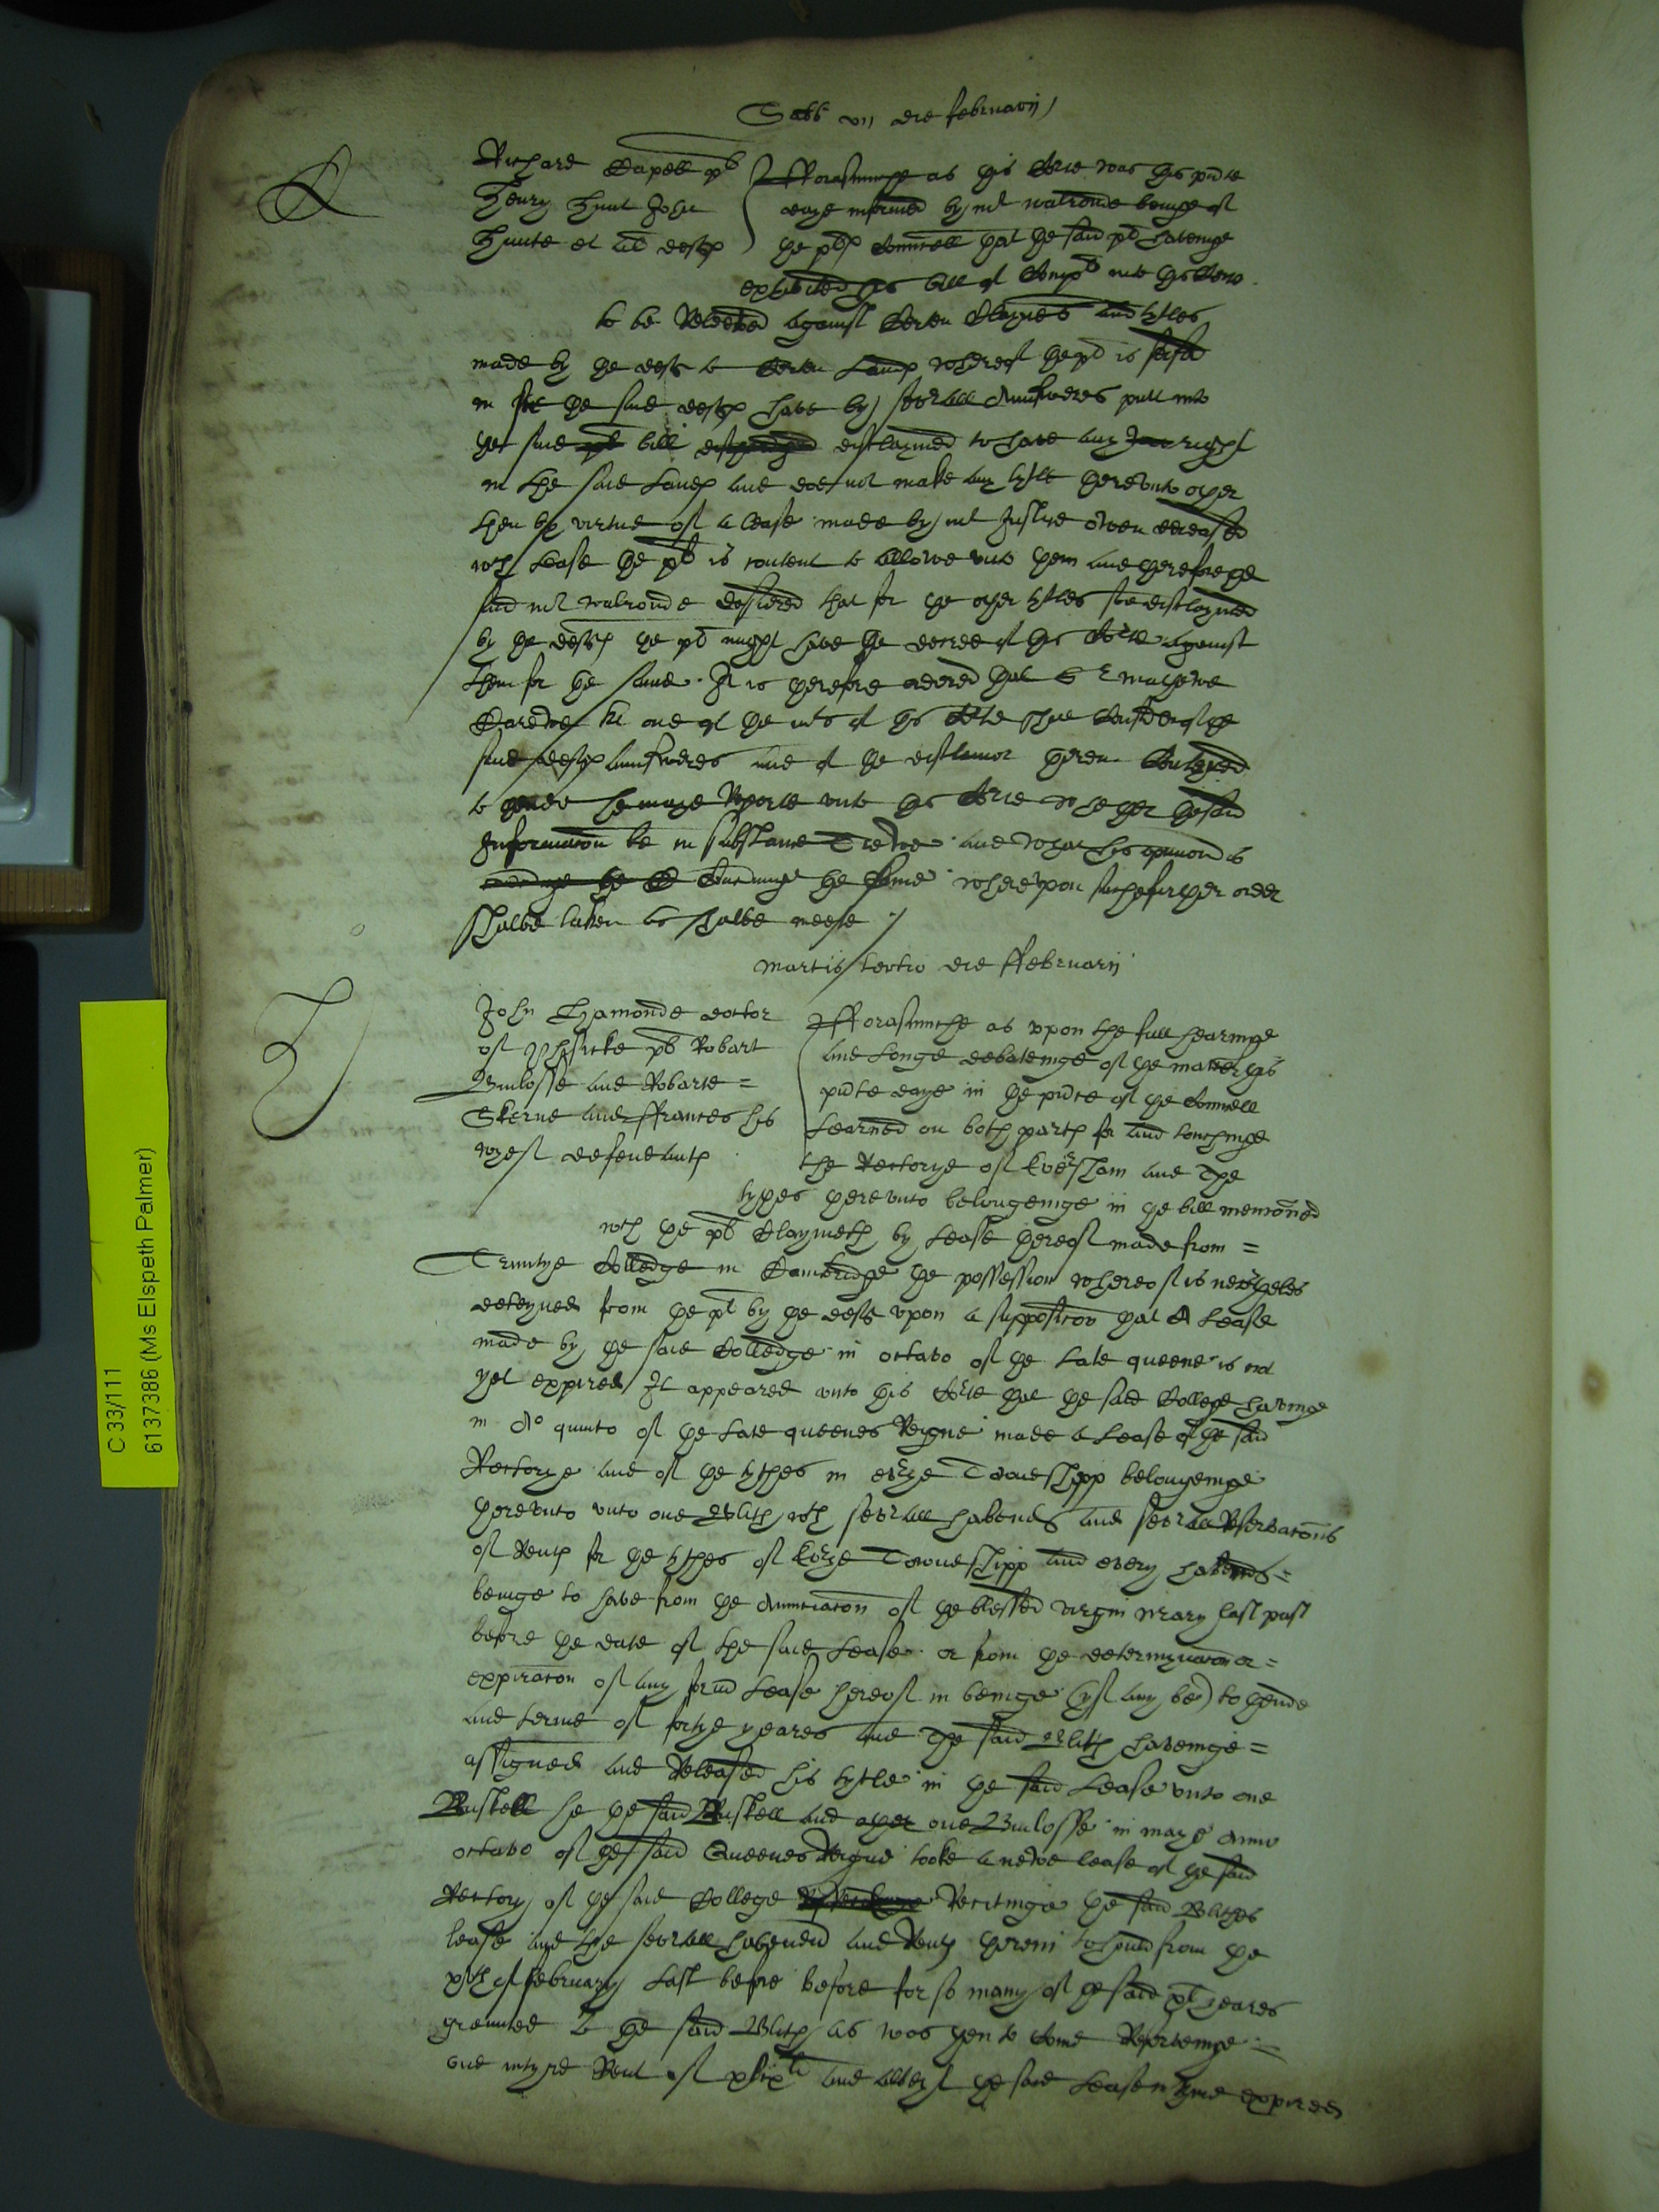 Sabb vii die februarij
Richard Capell pl
Henry Hunt John
Hunte et al defts
fforasmuche as this Corte was this pnte
daye informed by mr walronde beinge of
the pltes Councell that the said pl haveinge
exhibited his bill of Compl into this Corte
to be Releeved against Certen Claymes and tytles
made by the defts to Certen Landes whereof the pl is seised
in fee the said deftes have by severall Aunsweres putt into
the said bill disclaymed to have any right
in the said Landes and doe not make any tytle thereunto other
then by virtue of a lease made by mr Justice Owen deceased
wch lease the pl is content to allowe unto them and therefore the
said mr walronde desiered that for the other tytles soe disclaymed
by the deftes the pl might have the decree of this Corte against
them for the same. It is therefore ordered that Sr mathewe
Carewe kt one of the mrs of this Corte shall Consider of the
said deftes aunsweres and of the disclaimor therein Conteyned
to thende he maye Reporte unto this Corte whether the said
Informacon be in substance Trewe and what his opinion is
touchinge the same whereupon suche further order
shalbe taken as shalbe meete /
martis tertio die ffebruarij
John Hamonde doctor
of Phisicke pl Robart
Bindlosse and Robarte =
Skerne and ffrances his
wyef defendantes
fforasmuche as upon the full hearinge
and Longe debateinge of the matter this
pnte daye in the pnte of the Councell
Learned on both partes for and touchinge
the Rectorye of Eversham and the
tythes thereunto belongeinge in the bill menconed
wch the pl Claymeth by Lease thereof made from =
Trinitye Colledge in Cambridge the possession whereof is nevertheles
deteyned from the pl by the defts upon a supposicon that A Lease
made by the said Colledge in octavo of the Late queene is not
yet expired / It appeared unto this Corte that the said Colledge havinge
in Ao quinto of the Late queenes Reigne made a Lease of the said
Rectorye and of the tythes in everye Towneshipp belongeinge
thereunto unto one Blith wth severall habends and severall Reservacons
of Rents for the tythes of everye Towneshipp and every habends =
beinge to have from the Annunciacon of the blessed virgin Mary last past
before the date of the said Lease or from the determynacon or =
expiracon of any formr Lease thereof in beinge (yf any be) to thende
and terme of fortye yeares and The said Blith haveinge =
assigned and Released his tytle in the said Lease unto one
Buskell he the said Buskell and other one Bindlosse in maye Anno
octavo of the said Queenes Reigne tooke a newe lease of the said
Rectory of the said Colledge Reciteinge the said Blithes
lease and the severall habend and Rents therein to hould from the
of february Last before before for so many of the said yeares
graunted to the said Blith as was then to Come Reserveinge =
one intyre Rent of and albeit the said Lease expired